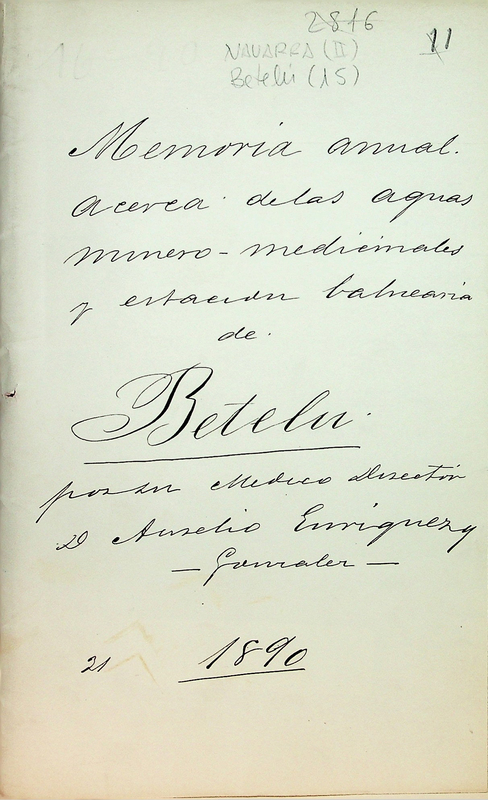 2876
NAVARRA (II)
Betelú (15)
11
Memoria anual.
acerca de las aguas
minero-medicinales
y estación balnearia
de.
Betelu.
por su Medico Director
D Aurelio Enriquez y
- Gonzalez -
21 1890